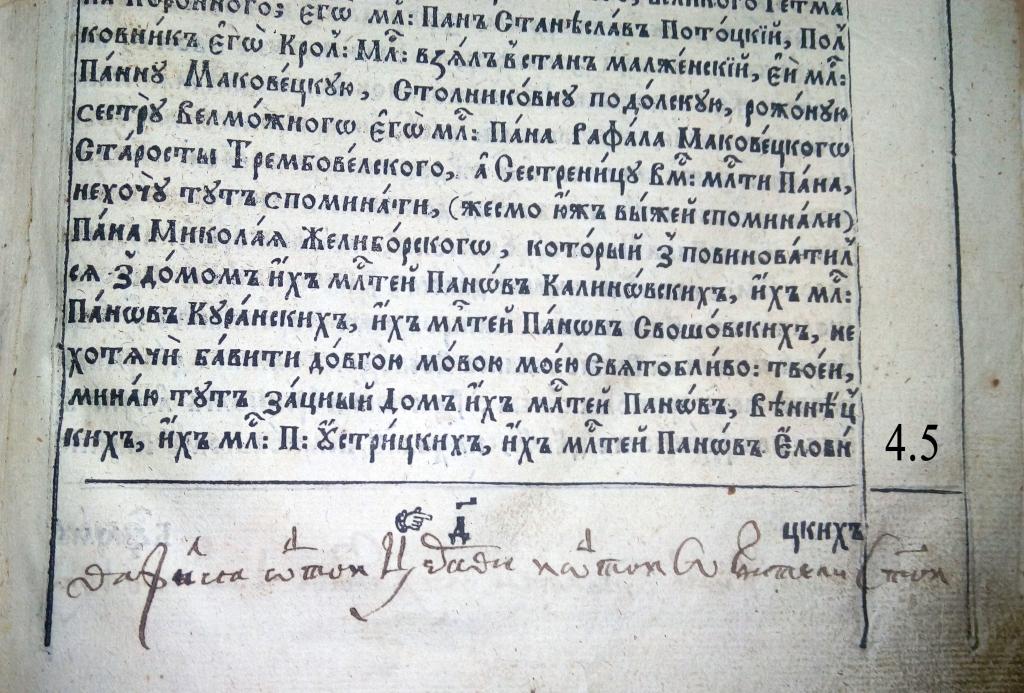 на Коронного; єгѡ мл҃: Панъ Станѣславъ Пото́цкїй, Пол
ковникъ єгѡ̀ Крол҃: Мл҃: взѧлъ в̾ станъ малже́нскїй, єй мл҃:
Па́нну Макове́цкую, Столнико́вну подо́лскую, рожо́ную
сестрꙋ̀ Велмо́жногѡ єгѡ̀ мл҃: Па́на Рафа́ла Макове́цкогѡ
Ста́росты Трембове́лского, а҆ Сестрени́цу Вм҃: мл҃ти Па́на,
нехочꙋ̀ тꙋтъ спомина́ти, (жесмо ю҆жъ вы́жей спомина́ли)
Па́на Микола́ѧ Желибо́рскогѡ, кото́рый з̾ повинова́тил
сѧ з̾ до́момъ и҆́хъ мл҃тей Панѡ́въ Калинѡ́вскихъ, и҆́хъ мл҃:
Па́нѡвъ Кура́нскихъ, и҆́хъ мл҃тей Па́нѡвъ Свошо́вскихъ, не
хотѧчѝ ба́вити до́вгою мо́вою мое́ю Свѧтобли́во: твоеи,
мина́ю тꙋтъ за́цный Домъ и҆́хъ мл҃тей Панѡ́въ, Вѣннѣц
кихъ, и҆́хъ мл҃: П: Оу҆стри́цкихъ, и҆́хъ мл҃тей Панѡ́въ Єлови
4.5
☞ д҃ цкихъ